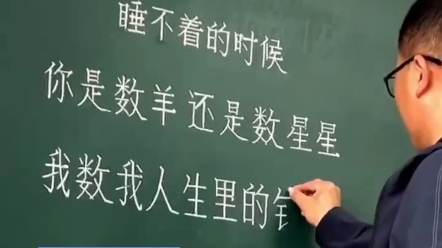 睡不着的时候
你是数羊还是数星星
我数我人生里的